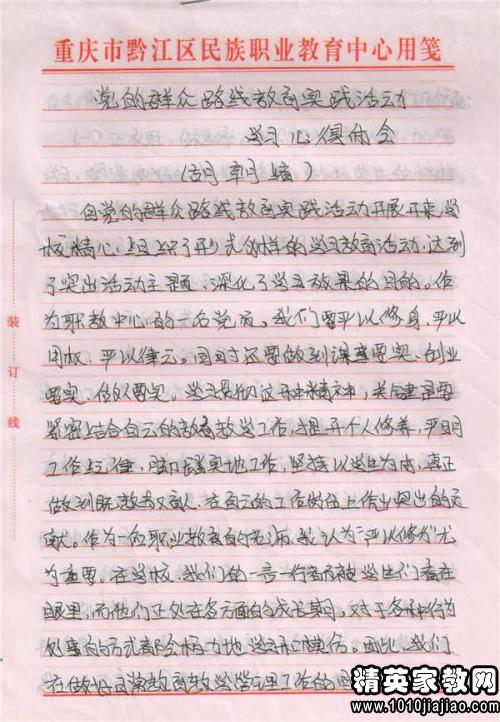 重庆市黔江区民族职业教育中心用笺
党的群众路线教育实践活动
学习心得体会
(胡朝
)
自党的群众路线教育实践活动开展开来,学
校精心组织了形式多样的学习教育活动,达到
了突出活动主题,深化了学习效果的目的。作
为职教中心的一名党员。我们要严以修身、严以
用权、严以律己。同时还要做到谋事要实、创业
要实、做人要实。学习贯彻这种精神,关键是要
紧密结合自己的教育教学工作,提升个人修养,严明
工作纪律,脚踏实地工作,坚持以学生为本,真正
做到既教书又育人,在自己的工作岗位上作出突出的贡
献。作为一名职业教育的老师,我认为“严以修身”尤
为重要。在学校,我们的一言一行都被学生们看在
眼里,而他们正处在各方面的成长期。对于各种行为
处事的方式都会极大地学习和模仿。因此,我们
在做好日常教育教学管理工作的
装
订
线
精英家教网
www.1010jiajiao.com